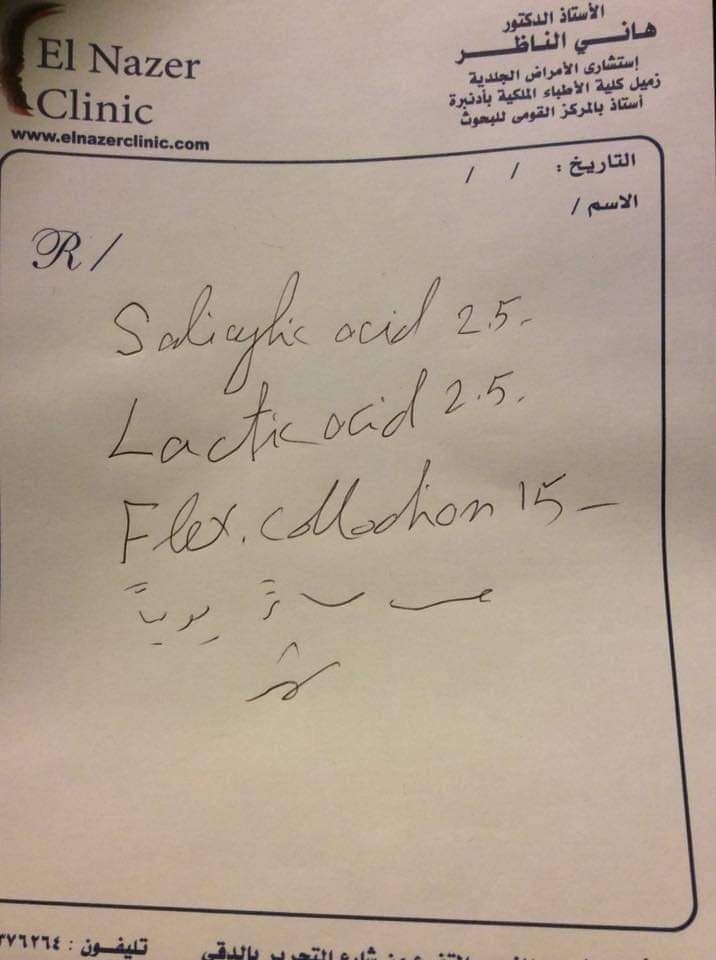 El Nazer
Clinic
www.elnazerclinic.com
الأستاذ الدكتور
هاني الناظر
إستشارى الأمراض الجلدية
زميل كلية الأطباء الملكية بأدنبرة
أستاذ بالمركز القومى للبحوث
التاريخ : / /
الاسم /
R/
Salicylic acid 2.5-
Lactic acid 2.5.
Flex. collodion 15-
مس مساءً يومياً
شارع التحرير بالدقى
تليفون : ٣٧٦٢٦٤